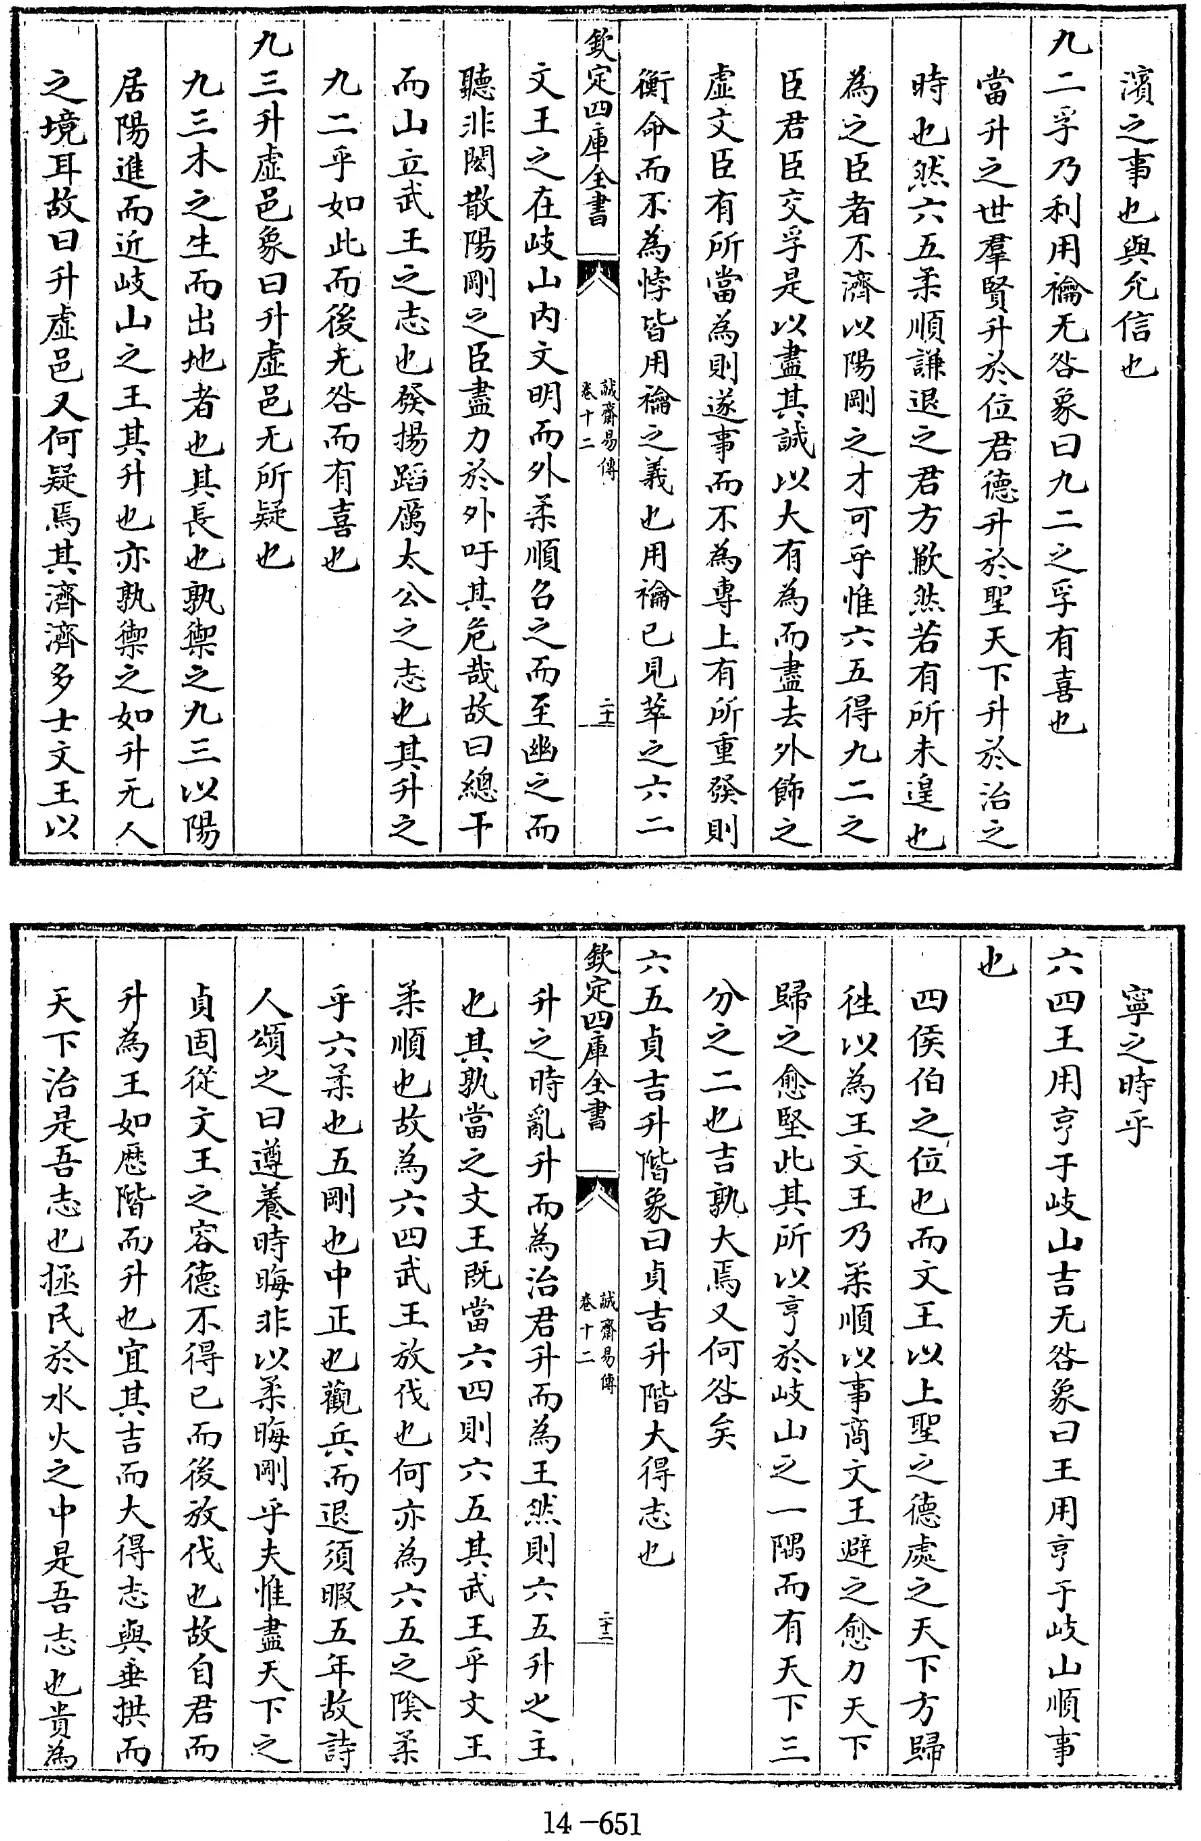 濱之事也與允信也
九二孚乃利用禴无咎象曰九二之孚有喜也
當升之世羣賢升於位君德升於聖天下升於治之
時也然六五柔順謙退之君方歉然若有所未遑也
為之臣者不濟以陽剛之才可乎惟六五得九二之
臣君臣交孚是以盡其誠以大有為而盡去外飾之
虛文臣有所當為則遂事而不為專上有所重發則
衡命而不為悖皆用禴之義也用禴已見萃之六二
欽定四庫全書
誠齋易傳
卷十二
二十一
文王之在岐山內文明而外柔順召之而至幽之而
聽非閎散陽剛之臣盡力於外吁其危哉故曰總干
而山立武王之志也發揚蹈厲太公之志也其升之
九二乎如此而後无咎而有喜也
九三升虛邑象曰升虛邑无所疑也
九三木之生而出地者也其長也孰禦之九三以陽
居陽進而近岐山之王其升也亦孰禦之如升无人
之境耳故曰升虛邑又何疑焉其濟濟多士文王以
寧之時乎
六四王用亨于岐山吉无咎象曰王用亨于岐山順事
也
四侯伯之位也而文王以上聖之德處之天下方歸
徃以為王文王乃柔順以事商文王避之愈力天下
歸之愈堅此其所以亨於岐山之一隅而有天下三
分之二也吉孰大焉又何咎矣
六五貞吉升階象曰貞吉升階大得志也
欽定四庫全書
誠齋易傳
卷十二
二十二
升之時亂升而為治君升而為王然則六五升之主
也其孰當之文王既當六四則六五其武王乎文王
柔順也故為六四武王放伐也何亦為六五之隂柔
乎六柔也五剛也中正也觀兵而退須暇五年故詩
人頌之曰遵養時晦非以柔晦剛乎夫惟盡天下之
貞固從文王之容德不得已而後放伐也故自君而
升為王如歴階而升也宜其吉而大得志與垂拱而
天下治是吾志也拯民於水火之中是吾志也貴為
14-651